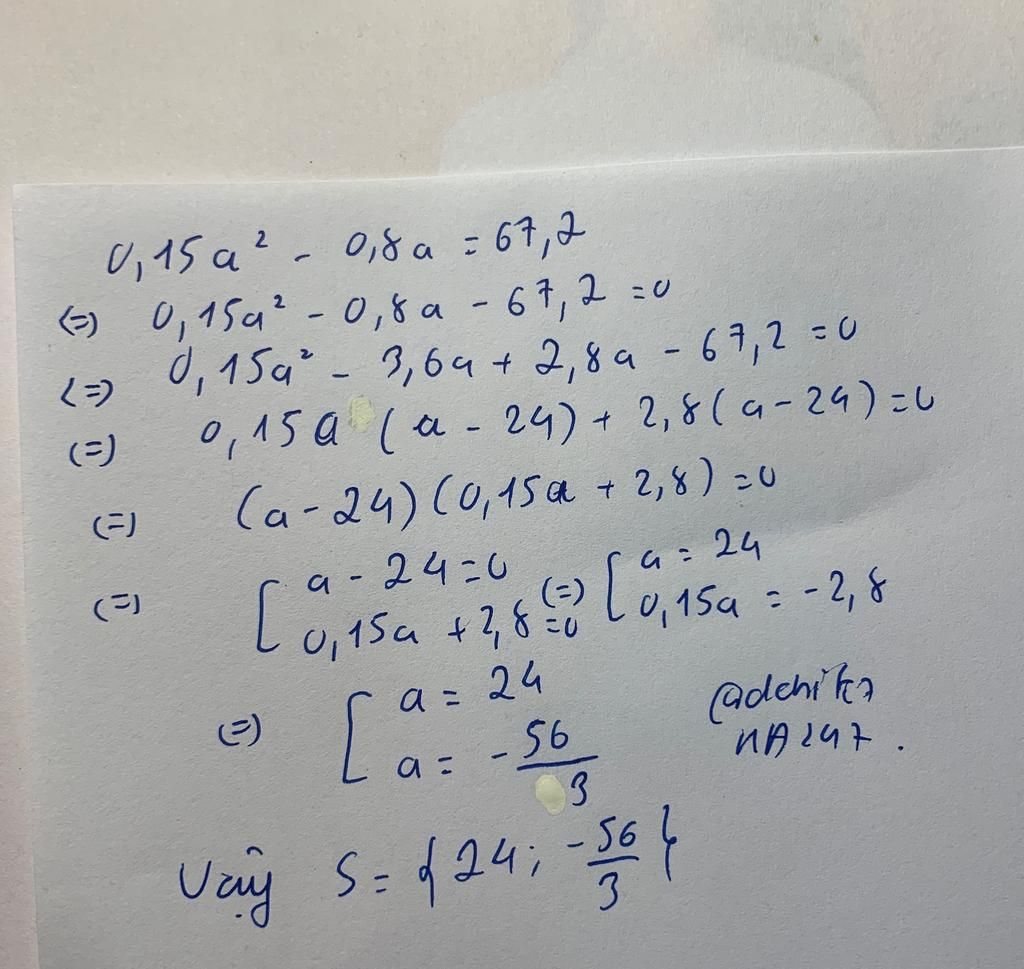 0,15a² - 0,8a = 67,2
(=) 0,15a² - 0,8a - 67,2 = 0
(=) 0,15a² - 3,6a + 2,8a - 67,2 = 0
(=) 0,15a (a - 24) + 2,8(a - 24) = 0
(=) (a - 24)(0,15a + 2,8) = 0
(=) [ a - 24 = 0 (=) [ a = 24
0,15a + 2,8 = 0 0,15a = -2,8
(=) [ a = 24
a = -56/3
nA247.
Vậy S = { 24; -56/3 }